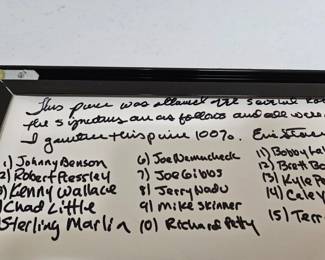 This piece was obtained
the signatures are as follows and all were
I guarantee this piece 100%.
1) Johnny Benson
2) Robert Pressley
3) Kenny Wallace
Chad Little
Sterling Marlin
6) Joe Nemechek
7) Joe Gibbs
8) Jerry Nadu
9) Mike Skinner
10) Richard Petty
11) Bobby
12) Brett
13) Kyle
14) Cale
15) Terr